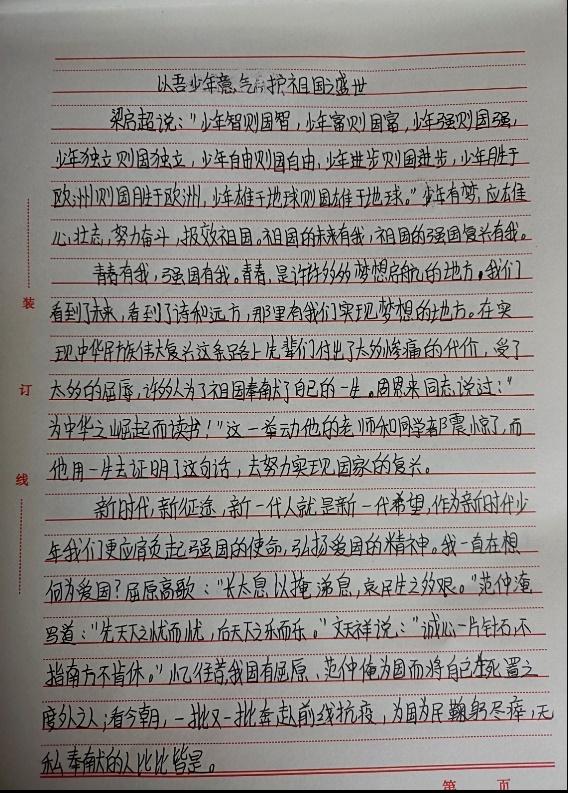 以吾少年意气 护祖国之盛世
梁启超说：“少年智则国智，少年富则国富，少年强则国强，
少年独立则国独立，少年自由则国自由，少年进步则国进步，少年胜于
欧洲则国胜于欧洲，少年雄于地球则国雄于地球。”少年有梦，应雄
心壮志，努力奋斗，报效祖国。祖国的未来有我，祖国的强国复兴有我。
青春有我，强国有我。青春，是许许多多梦想启航的地方。我们
看到了未来，看到了诗和远方，那里有我们实现梦想的地方。在实
现中华民族伟大复兴这条路上先辈们付出了太多惨痛的代价，受了
太多的屈辱，许多人为了祖国奉献了自己的一生。周恩来同志说过：“
为中华之崛起而读书！”这一举动他的老师和同学都震惊了，而
他用一生去证明了这句话，去努力实现国家的复兴。
新时代，新征途，新一代人就是新一代希望，作为新时代少
年我们更应肩负起强国的使命，弘扬爱国的精神。我一直在想
何为爱国？屈原高歌：“长太息以掩涕息，哀民生之多艰。”范仲淹
写道：“先天下之忧而忧，后天下之乐而乐。”文天祥说：“诚心一片针石，不
指南方不肯休。”忆往昔我国有屈原、范仲俺为国而将自己生死置之
度外之人；看今朝，一批又一批奔赴前线抗疫，为国为民鞠躬尽瘁，无
私奉献的人比比皆是。
装
订
线
第 页